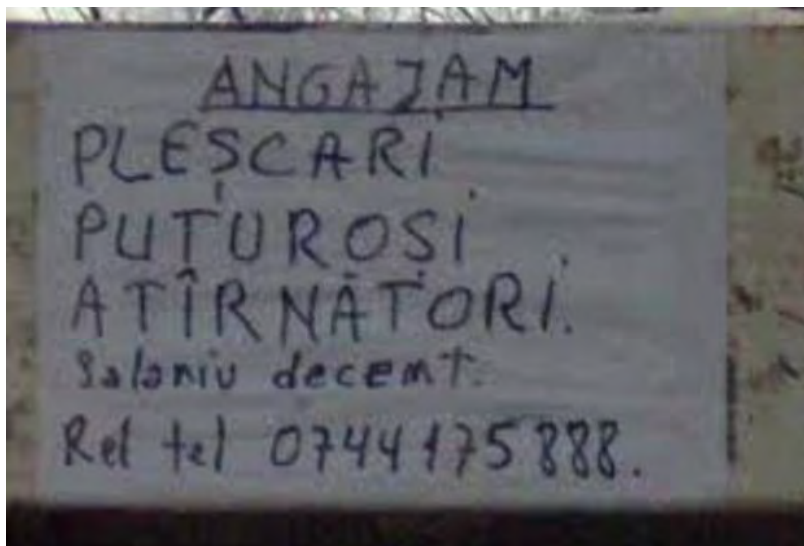 ANGAJAM
PLEȘCARI
PUȚUROȘI
ATÎRNĂȚORI.
Salariu decent.
Rel tel 0744175888.